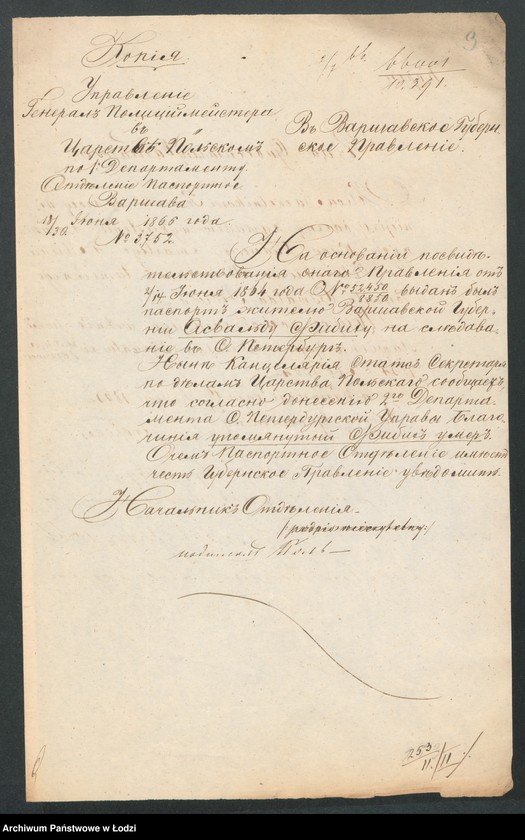 Копія.
3
66001
10.291.
Управленіе
Генералъ Полиціймейстера
въ
Царствѣ Польскомъ
по 1. Департаменту.
Отдѣленіе Паспортное
Варшава
18/30 Іюня 1865 года.
№ 3752.
Въ Варшавское Губерн
ское Правленіе.
На основаніи посвидѣ-
тельствованія онаго Правленія отъ
2/14 Іюня 1864 года № 52450/8850 выданъ былъ
паспортъ жителю Варшавской Губер-
ніи на слѣдова-
ніе въ С. Петербургъ.
Нынѣ Канцелярія Статсъ Секретаря
по дѣламъ Царства Польскаго сообщаетъ
что согласно донесенію 2го Департа-
мента С. Петербургской Управы Благо-
чинія упомянутый умеръ.
О чемъ Паспортное Отдѣленіе имѣетъ
честь Губернское Правленіе увѣдомить.
Начальникъ Отдѣленія.
253
11/11
Archiwum Państwowe w Łodzi